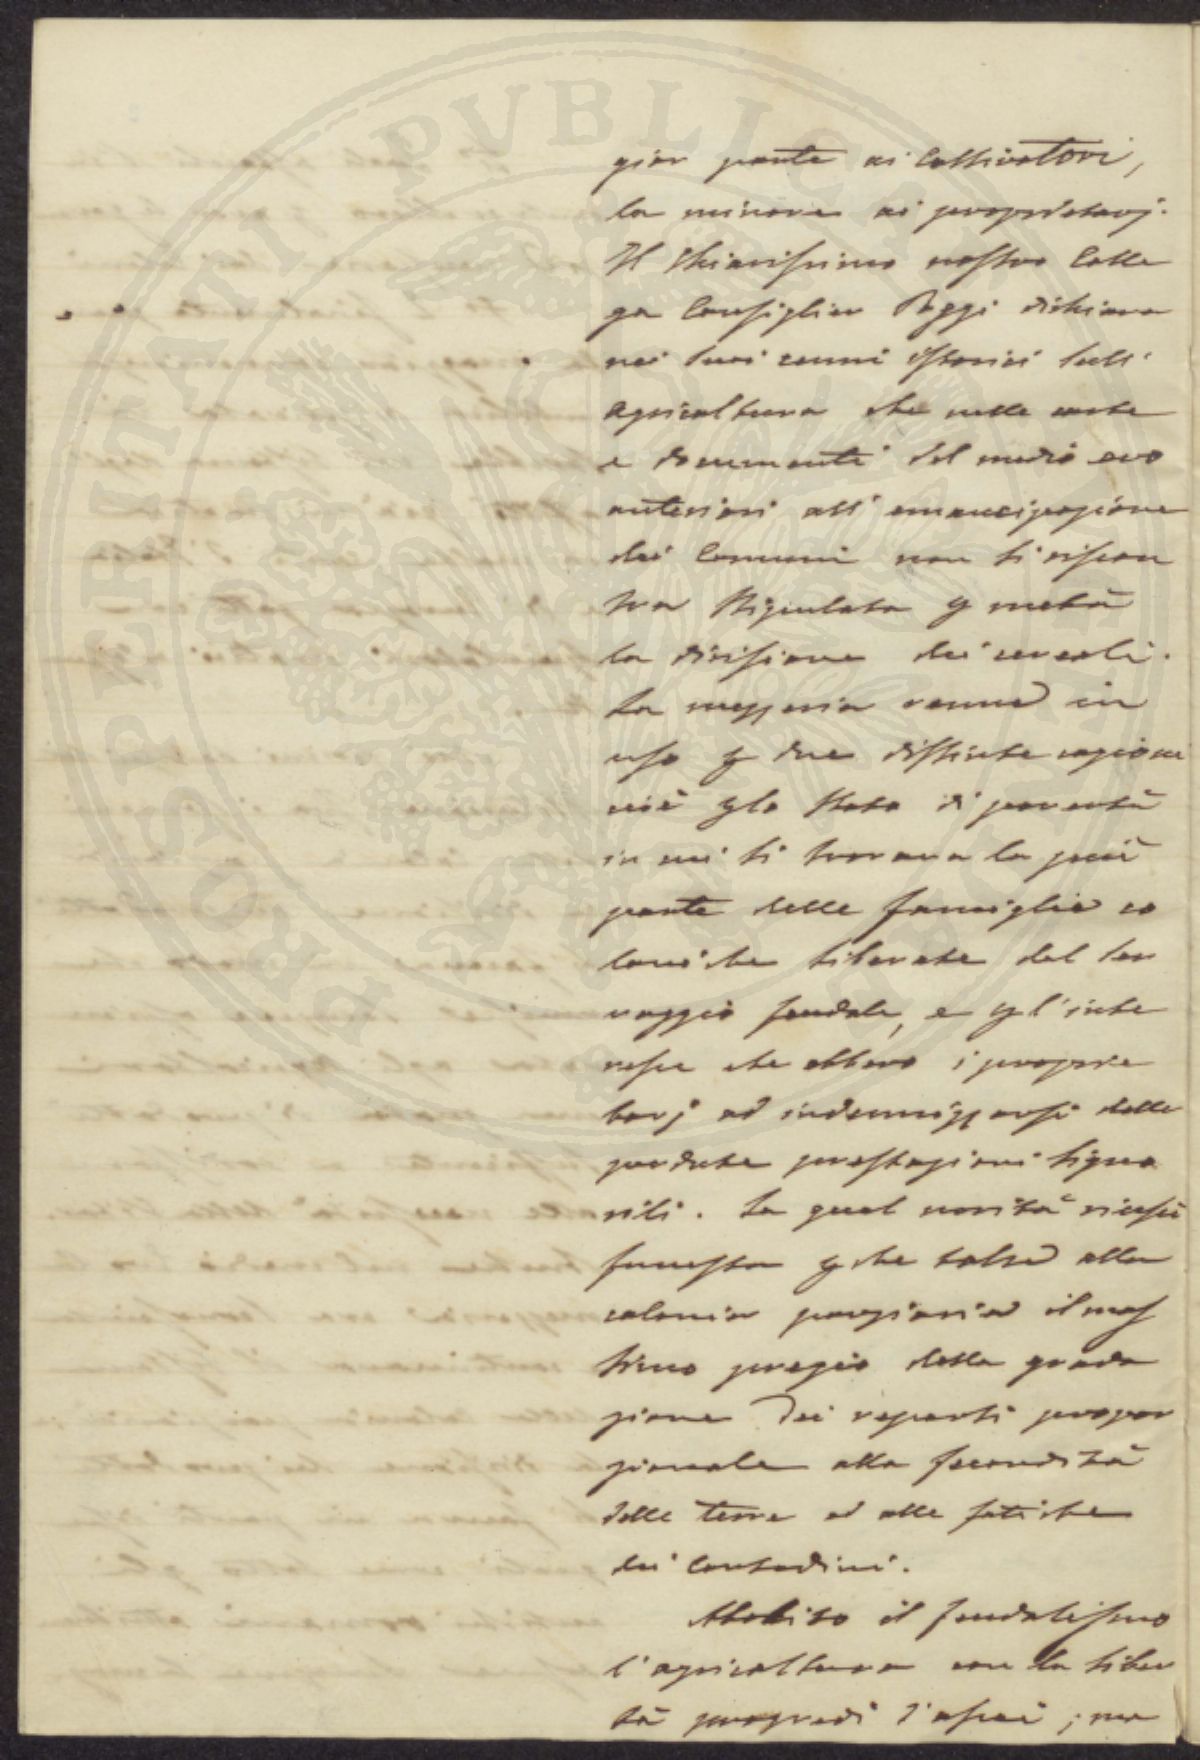 PROSPERITATI PVBLICAE
gior parte ai Coltivatori,
la minore ai proprietarj.
Il Chiarissimo nostro Colle
ga Consiglier Poggi dichiara
nei suoi cenni istorici sull'
agricoltura che nelle carte
e documenti del medio evo
anteriori all'emancipazione
dei Comuni non si riscon
tra stipulata p metà
la divisione dei cereali.
La mezzeria venne in
uso p due distinte cagioni
cioè p lo stato di povertà
in cui si trovava la più
parte delle famiglie co
loniche liberate dal ser
vaggio feudale, e p l'inte
resse che ebbero i proprie
tarj ad indennizzarsi delle
perdute prestazioni signo
rili. La qual novità riescì
funesta p che tolse alla
colonia parziaria il mas
simo pregio della grada
zione dei reparti propor
zionale alla fecondità
delle terre ed alle fatiche
dei Contadini.
Abolito il feudalismo
l'agricoltura con la liber
tà progredì d'assai; ma